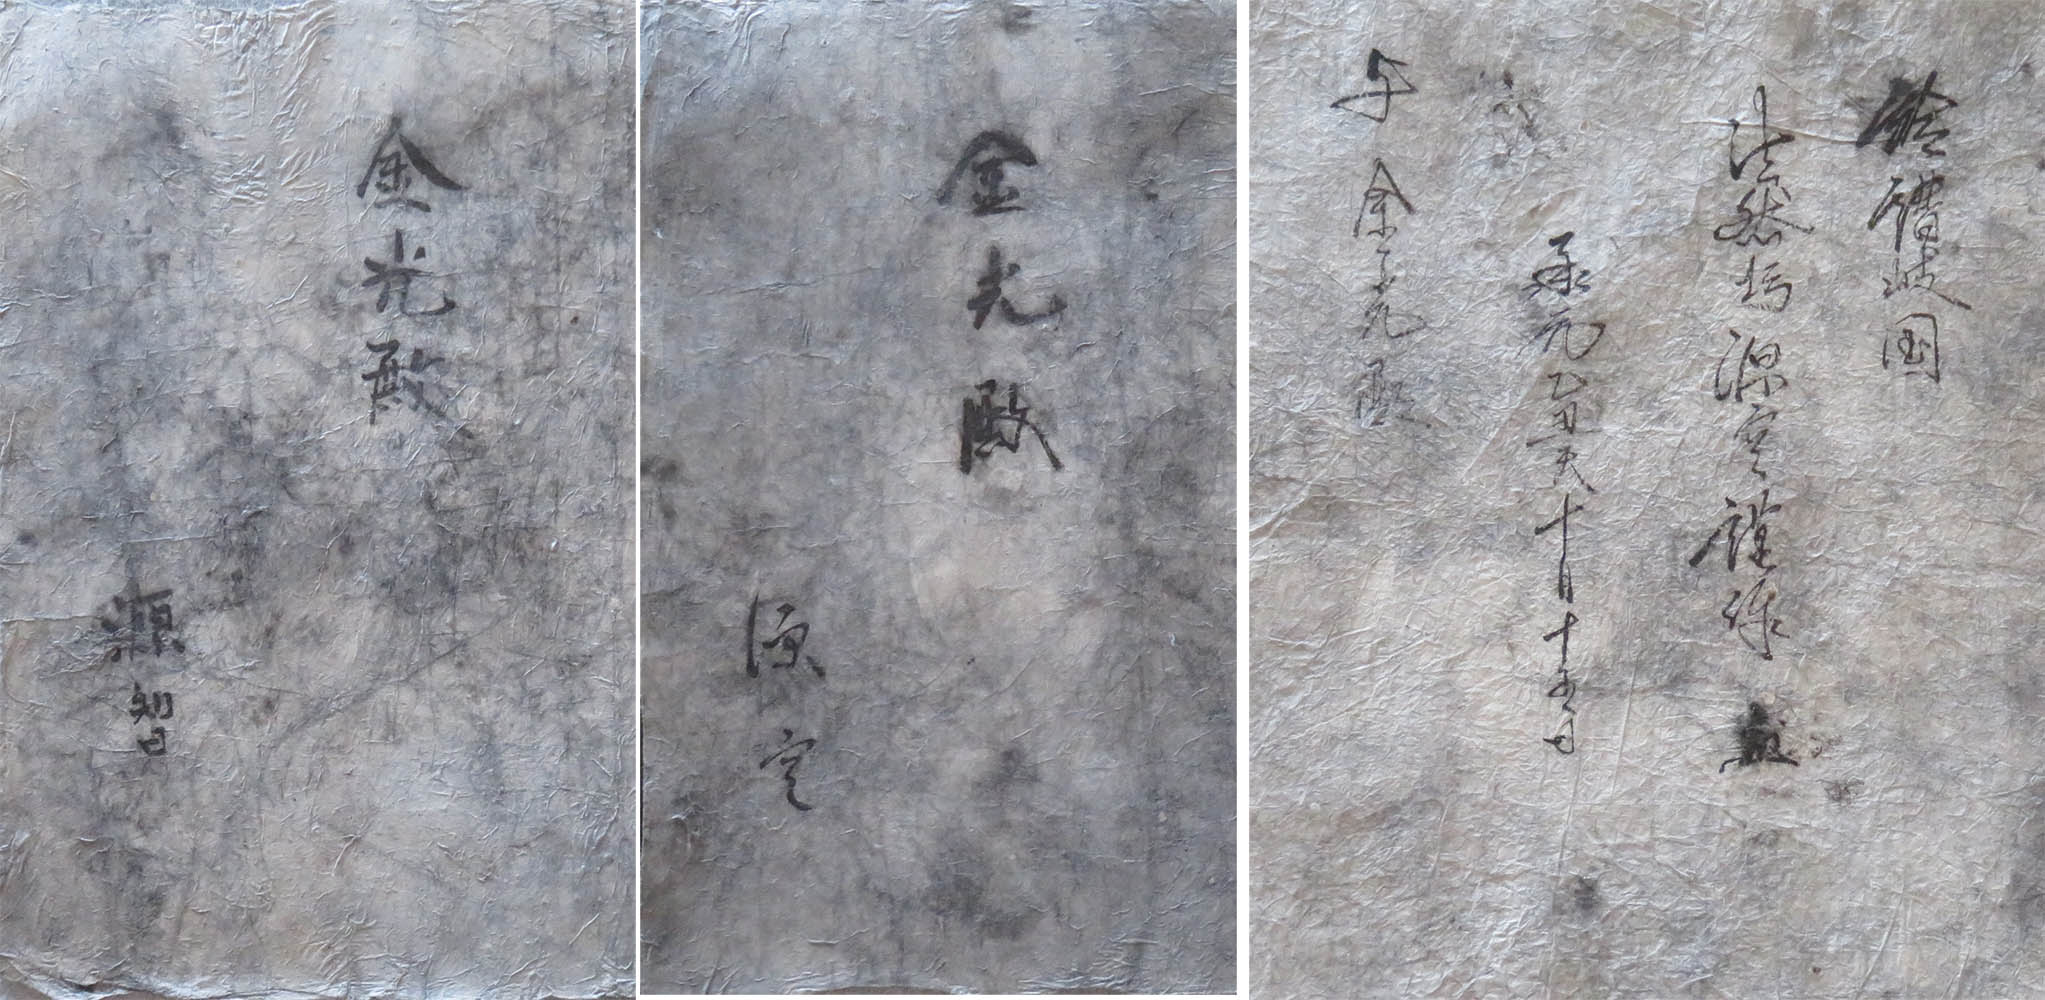 金光殿
源智
金光殿
源空
讃岐国
法然坊源空謹作
承元丑天十月十五日
与金光殿